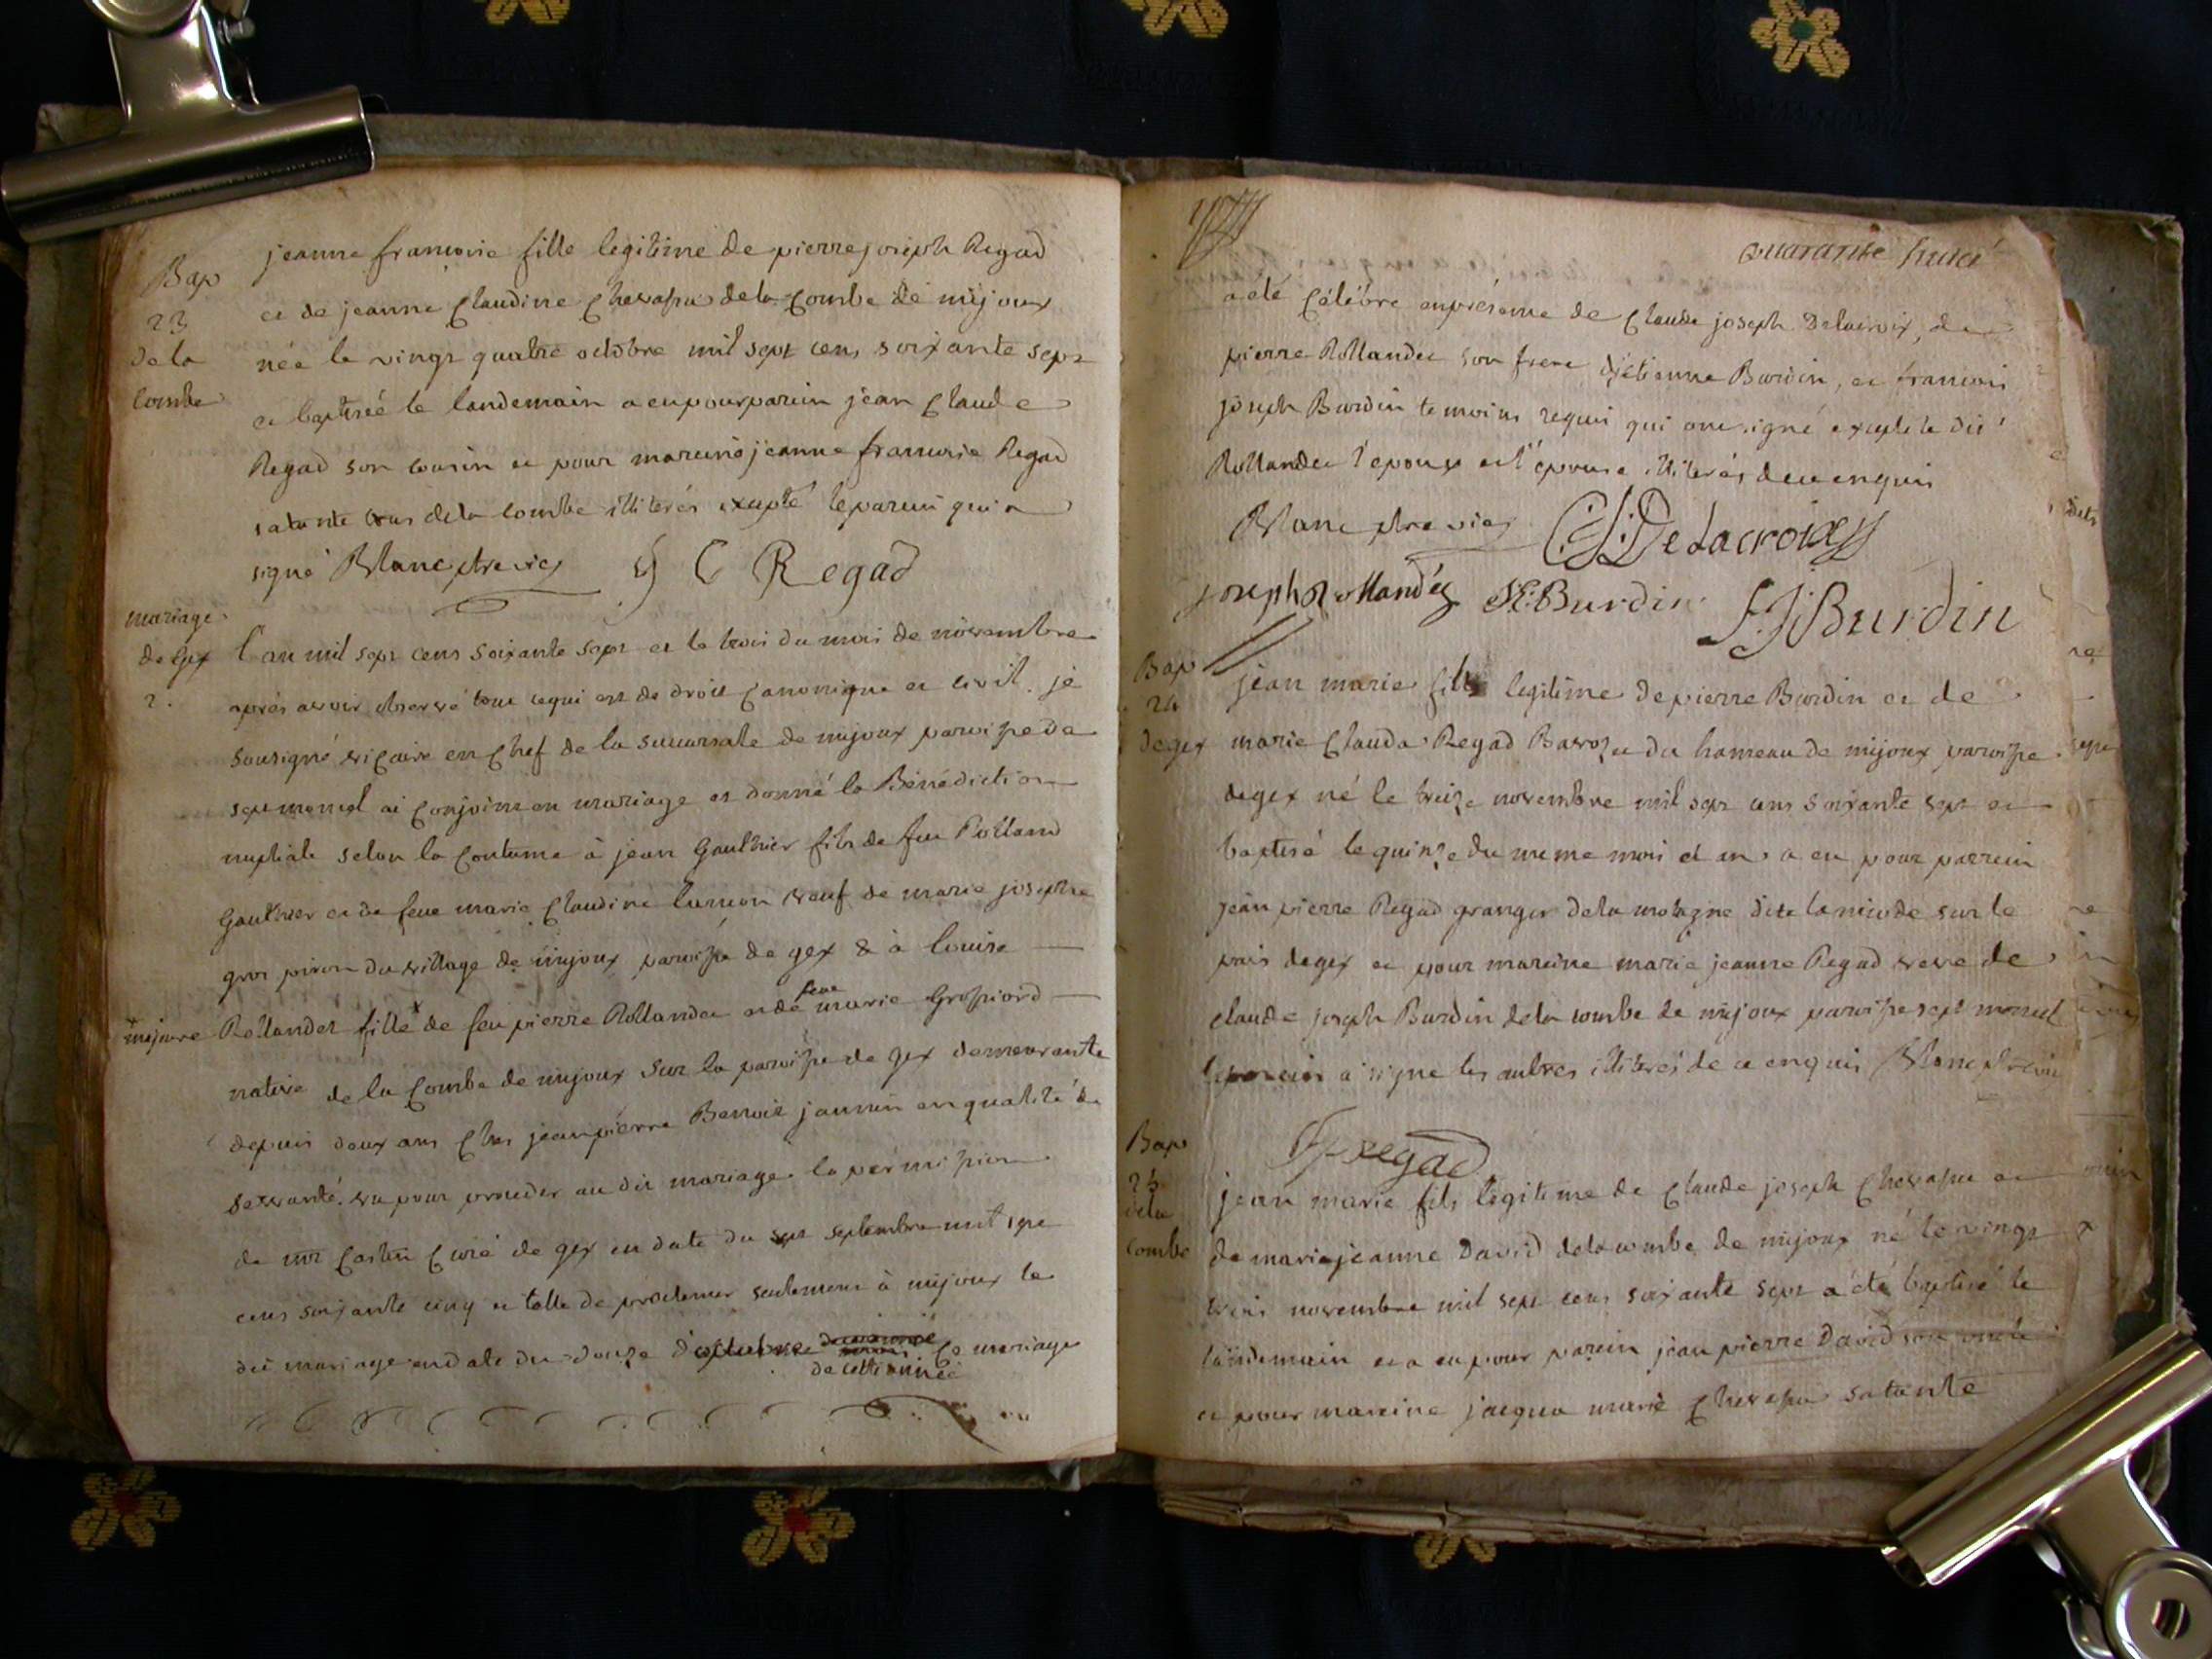 Bap
23
dela
Combe
jeanne francoise fille legitime de pierre joseph Regad
et de jeanne Claudine Chevassu dela Combe de mijoux
née le vingt quatre octobre mil sept cens soixante sept
et baptiseé le landemain a eu pour parein jean Claude
Regad son cousin et pour mareine jeanne francoise Regad
sa tante tous dela combe illiterés excepté le parein qui a
signé Blanc ptre vic J C Regad
mariage
de Gex
2.
L'an mil sept cens soixante sept et le trois du mois de novembre
aprés avoir observé tout ce qui est de droit Canonique et civil. je
sousigné vicaire en Chef de la succursale de mijoux paroisse de
septmoncel ai Conjoint en mariage et donné la Bénédiction
nuptiale selon la Coutume à jean Gauthier fils de feu Rolland
Gauthier et de feue marie Claudine veuf de marie josephe
gros du village de mijoux paroisse de gex & à louise
majeure Rollandet fille de feu pierre Rollandet et de feue marie Grospiord
native de la Combe de mijoux sur la paroisse de gex demeurante
depuis deux ans Ches jean pierre Benoit jannin en qualité de
servante. vu pour proceder au dit mariage la permission
de mr Castin Curé de gex en date du sept septembre mil sept
cens soixante cinq et celle de proclamer seulement à mijoux le
dit mariage en date du douze d'octobre de cette année Ce mariage
quarante huict
a été Célébré en présence de Claude joseph Delacroix, de
pierre Rollandet son frere d'étienne Burdin, et francois
joseph Burdin temoins requis qui ont signé excepté le dit
Rollandet l'epoux et l'epouse illiterés de ce enquis
Blanc ptre vic C J Delacroix
joseph Rollandéz E Burdin F J Burdin
Bap
24
de gex
jean marie fils legitime de pierre Burdin et de
marie Clauda Regad Barozet du hameau de mijoux paroisse
de gex né le treize novembre mil sept cens soixante sept et
baptisé le quinze du meme mois et an a eu pour parrein
jean pierre Regad granger dela motagne dite la sur le
païs de gex et pour mareine marie jeanne Regad veve de
claude joseph Burdin dela combe de mijoux paroisse sept moncel
le parein a signe les autres illiterés de ce enquis Blanc ptre vic
J p regad
Bap
25
dela
combe
jean marie fils legitime de Claude joseph Chevassu et
de marie jeanne David dela combe de mijoux né le vingt
trois novembre mil sept cens soixante sept a été baptisé le
landemain et a eu pour parein jean pierre David son oncle
et pour mareine jacqua marie Chevassu sa tante